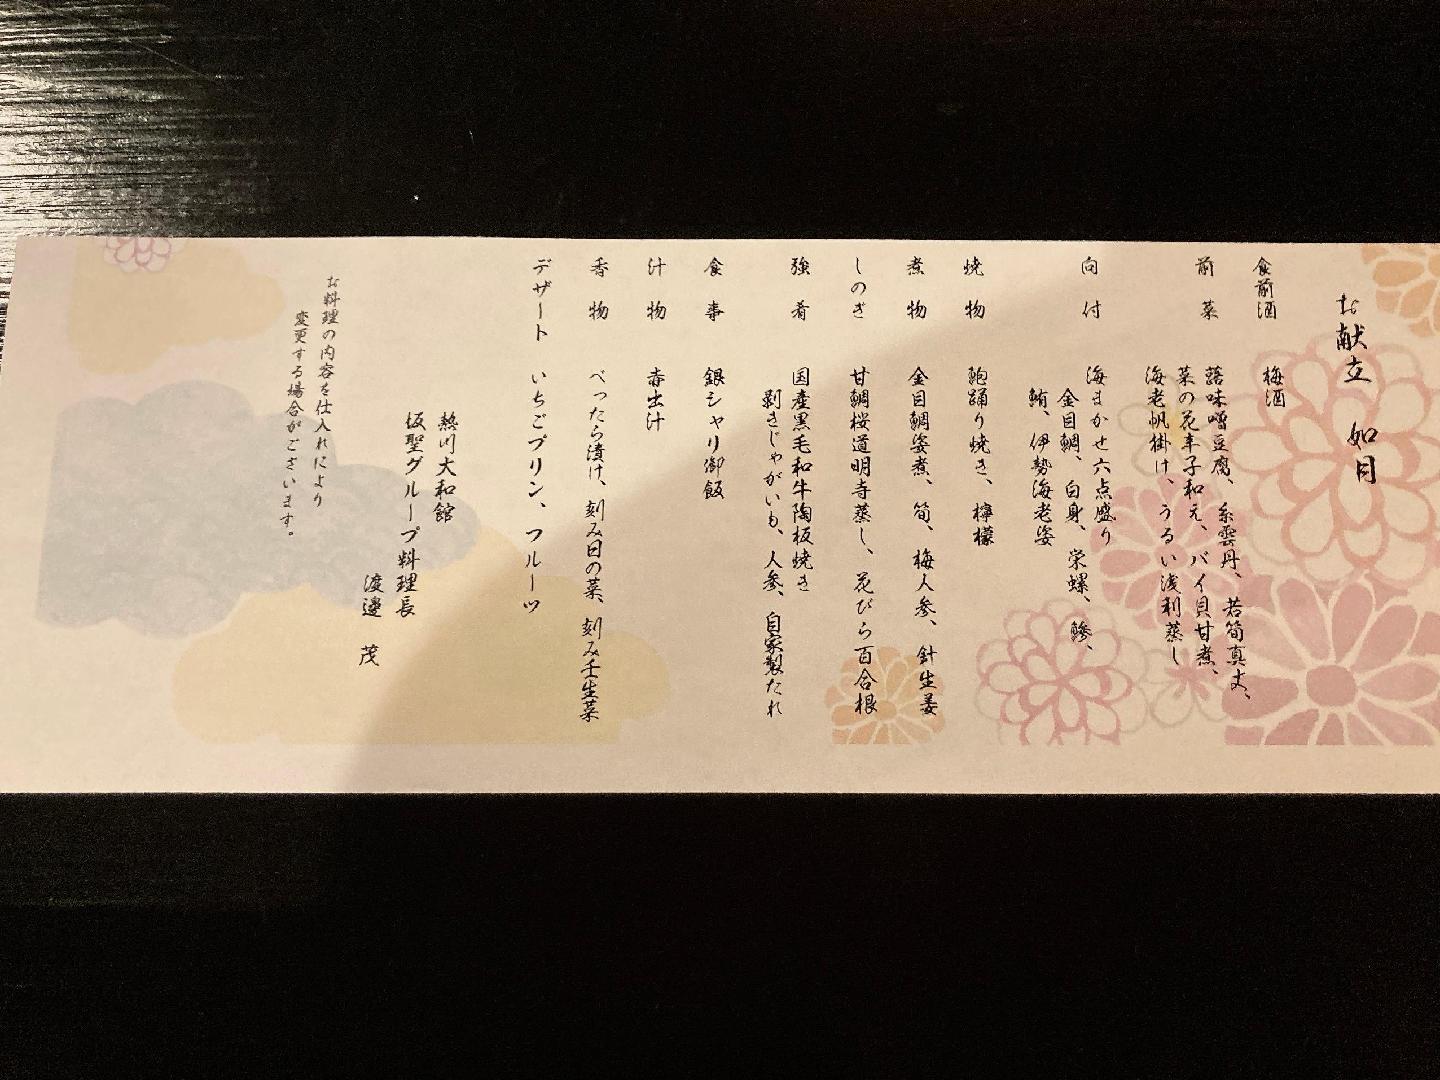 お献立 如月
食前酒 梅酒
前菜 蕗味噌豆腐、糸雲丹、若筍真丈、
菜の花辛子和え、バイ貝甘煮、
海老帆掛け、うるい浅利蒸し
向付 海まかせ六点盛り
金目鯛、白身、栄螺、鯵、
鮪、伊勢海老姿
焼物 鮑踊り焼き、檸檬
煮物 金目鯛姿煮、筍、梅人参、針生姜
しのぎ 甘鯛桜道明寺蒸し、花びら百合根
強肴 国産黒毛和牛陶板焼き
剥きじゃがいも、人参、自家製たれ
食事 銀シャリ御飯
汁物 赤出汁
香物 べったら漬け、刻み日の菜、刻み壬生菜
デザート いちごプリン、フルーツ
熱川大和館
坂聖グループ料理長
渡邊 茂
お料理の内容を仕入れにより
変更する場合がございます。